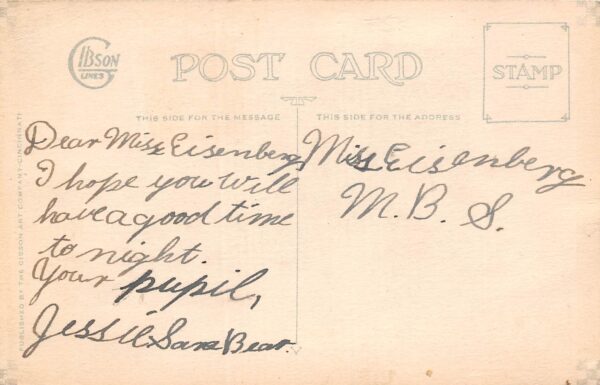 GIBSON
LINES
POST CARD
STAMP
THIS SIDE FOR THE MESSAGE
THIS SIDE FOR THE ADDRESS
PUBLISHED BY THE GIBSON ART COMPANY-CINCINNATI
Dear Miss Eisenberg,
I hope you will
have a good time
to night.
Your pupil,
Jessie Bear.
Miss Eisenberg
M. B. S.